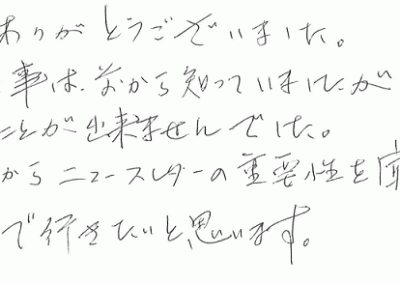 ありがとうございました。
事は、前から知っていましたが
ことが出来ませんでした。
から ニュースレターの重要性を
で行きたいと思います。